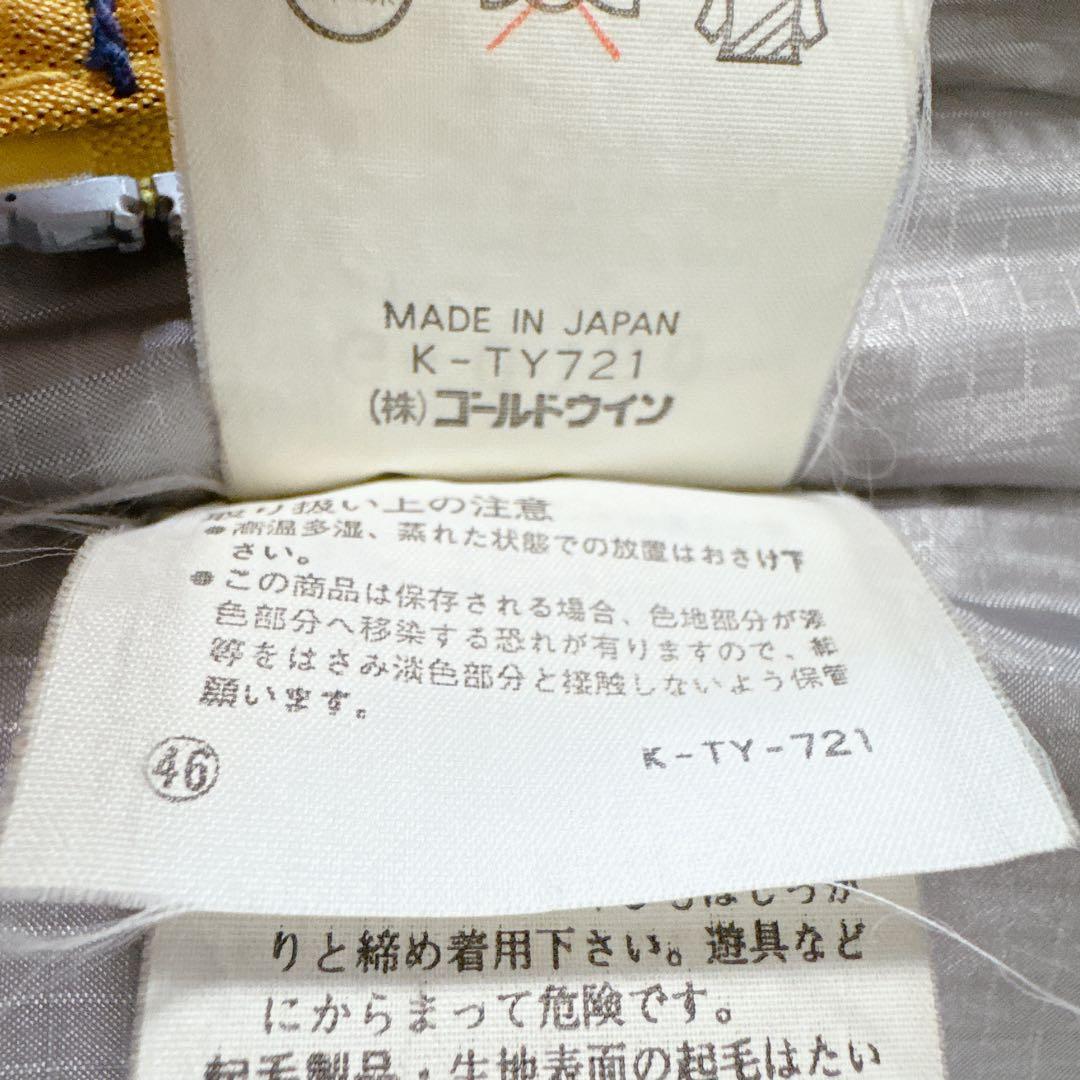 MADE IN JAPAN
K-TY721
(株)ゴールドウイン
取り扱い上の注意
●高温多湿、蒸れた状態での放置はおさけ下
さい。
●この商品は保存される場合、色地部分が淡
色部分へ移染する恐れが有りますので、紙
等をはさみ淡色部分と接触しないよう保管
願います。
㊻
K-TY-721
りと締め着用下さい。遊具など
にからまって危険です。
起毛製品・生地表面の起毛はたい